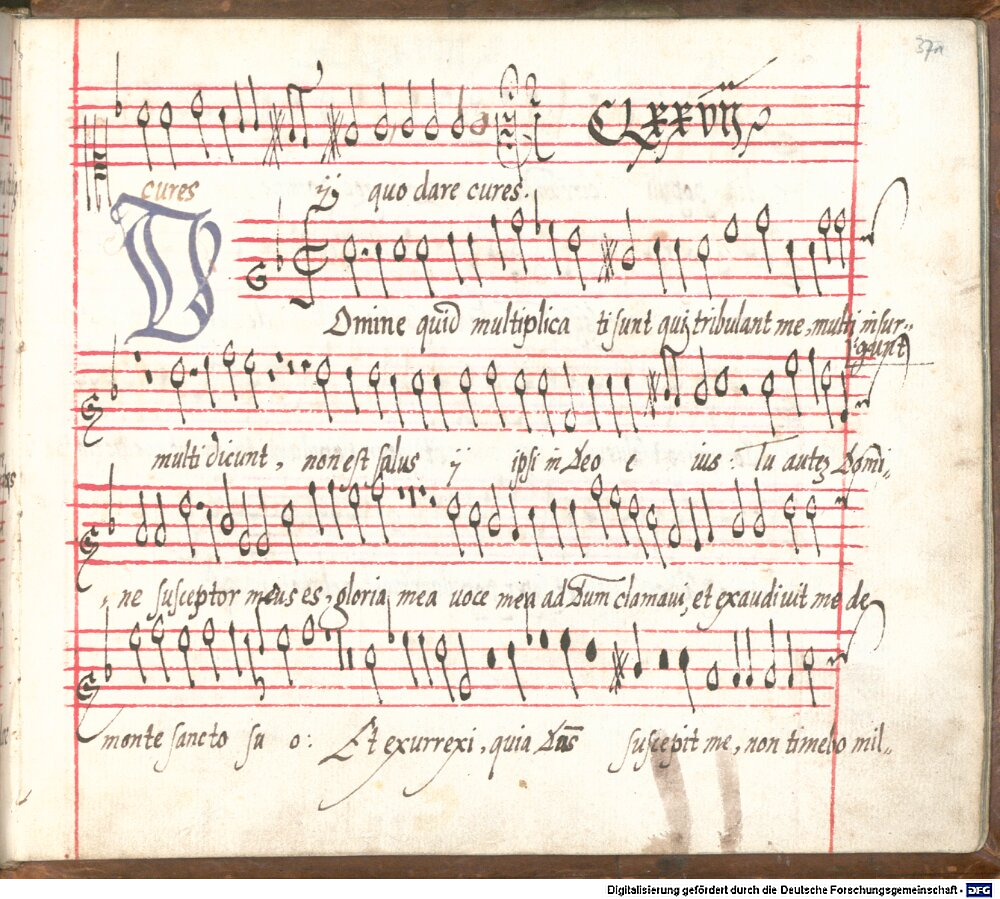 37a
CLXXVIIJ
cures ij quo dare cures.
Domine quid multiplica ti sunt qui tribulant me, multi insur-
gunt
multi dicunt, non est salus ij ipsi in Deo e ius: Tu autē Domi-
ne susceptor meus es, gloria mea voce mea ad Dūm clamavi, et exaudivit me de
monte sancto su o: Et exurrexi, quia Dūs suscepit me, non timebo mil-
Digitalisierung gefördert durch die Deutsche Forschungsgemeinschaft - DFG